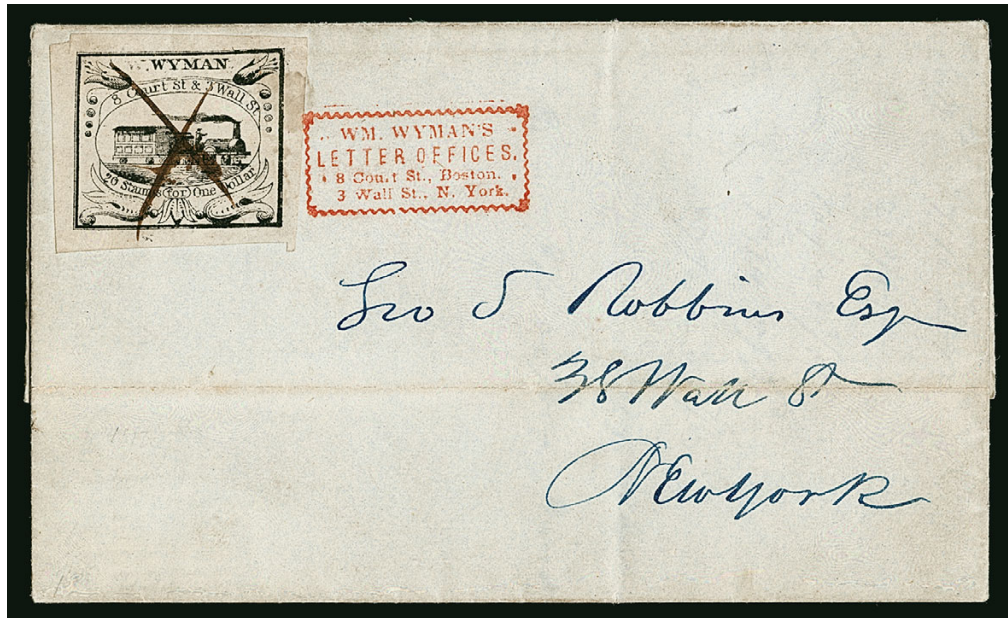 W. WYMAN.
8 Court St & 3 Wall St.
20 Stamps for One Dollar
WM. WYMAN'S
LETTER OFFICES.
8 Court St., Boston.
3 Wall St., N. York.
Geo S Robbins Esq
38 Wall St
New York